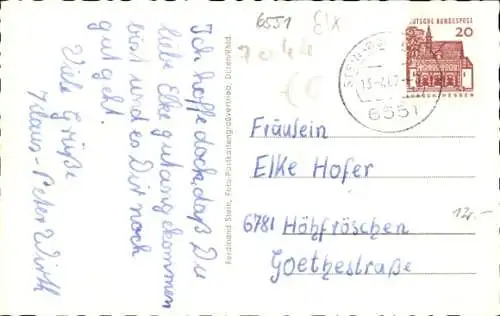 Ich hoffe doch, daß Du
liebe Elke gut angekommen
bist und es Dir noch
gut geht.
Viele Grüße
Klaus-Peter Wirth
Ferdinand Stein, Foto-Postkartengroßvertrieb,
6551
DEUTSCHE BUNDESPOST
20
LORSCH HESSEN
6551
Fräulein
Elke Hofer
6781 Höhfröschen
Goethestraße
12.-